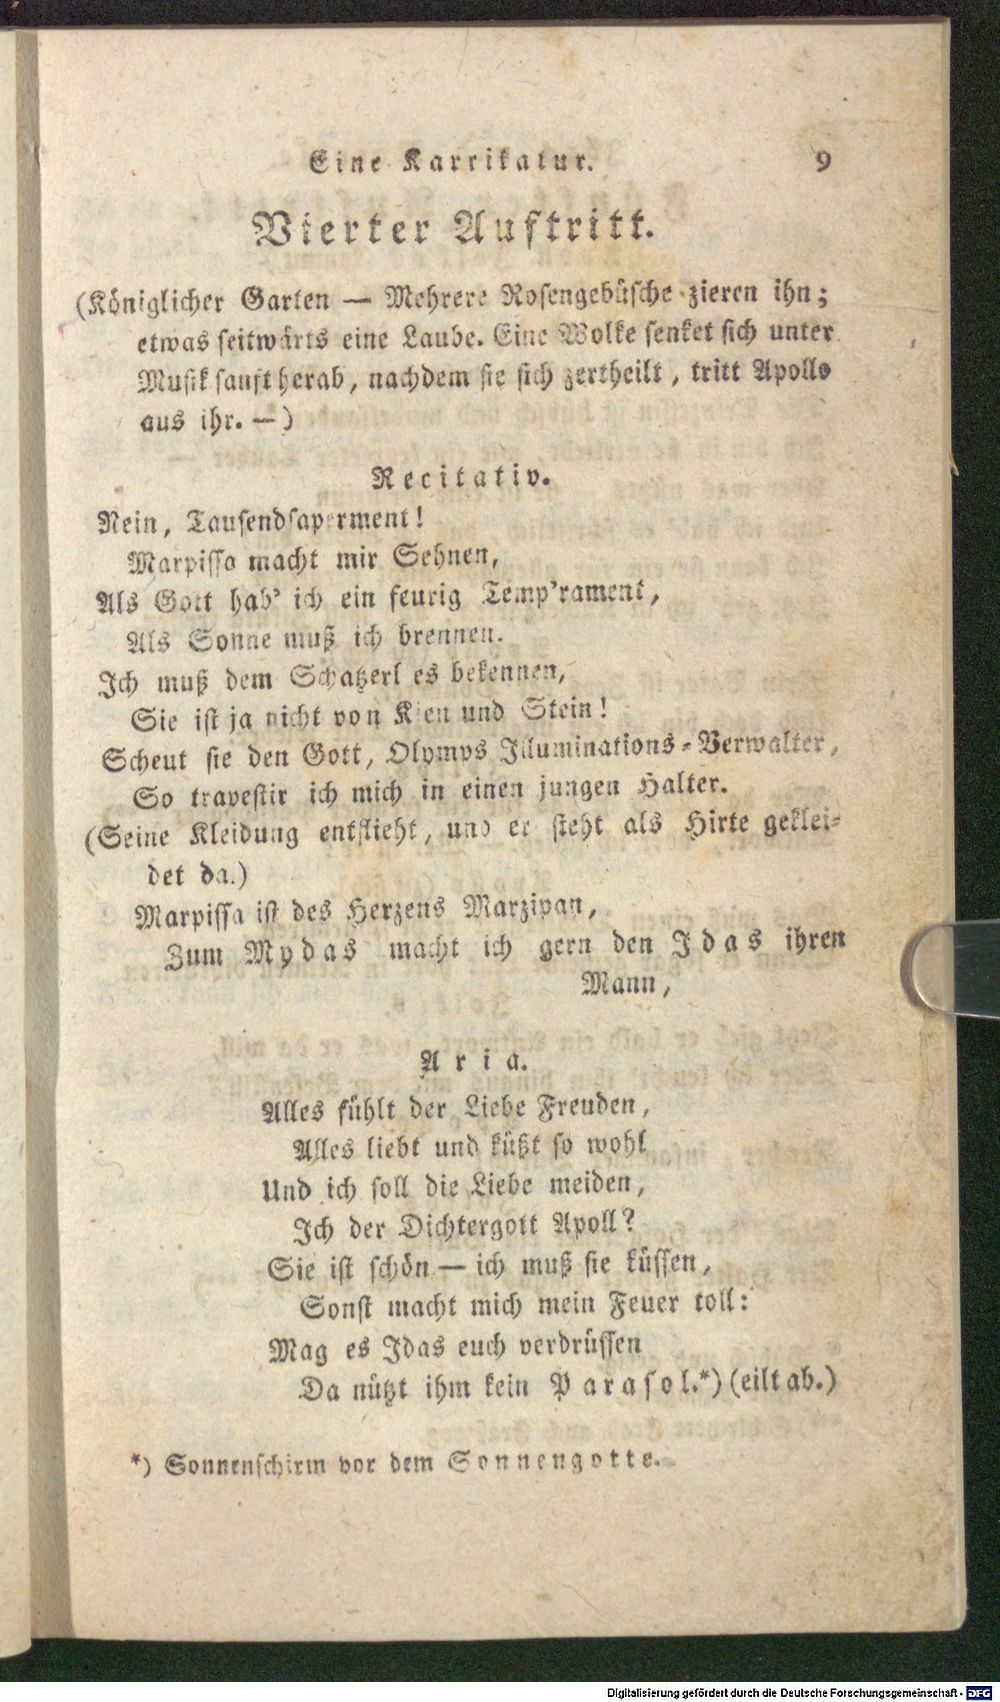 Eine Karrikatur. 9
Vierter Auftritt.
(Königlicher Garten — Mehrere Rosengebüsche zieren ihn;
etwas seitwärts eine Laube. Eine Wolke senket sich unter
Musik sanft herab, nachdem sie sich zertheilt, tritt Apollo
aus ihr. —)
Recitativ.
Nein, Tausendsaperment!
Marpissa macht mir Sehnen,
Als Gott hab' ich ein feurig Temp'rament,
Als Sonne muß ich brennen.
Ich muß dem Schatzerl es bekennen,
Sie ist ja nicht von Kien und Stein!
Scheut sie den Gott, Olymps Illuminations-Verwalter,
So travestir ich mich in einen jungen Halter.
(Seine Kleidung entflieht, und er steht als Hirte geklei-
det da.)
Marpissa ist des Herzens Marzipan,
Zum Mydas macht ich gern den Idas ihren
Mann,
Aria.
Alles fühlt der Liebe Freuden,
Alles liebt und küßt so wohl
Und ich soll die Liebe meiden,
Ich der Dichtergott Apoll?
Sie ist schön — ich muß sie küssen,
Sonst macht mich mein Feuer toll:
Mag es Idas euch verdrüssen
Da nützt ihm kein Parasol.*) (eilt ab.)
*) Sonnenschirm vor dem Sonnengotte.
Digitalisierung gefördert durch die Deutsche Forschungsgemeinschaft - DFG